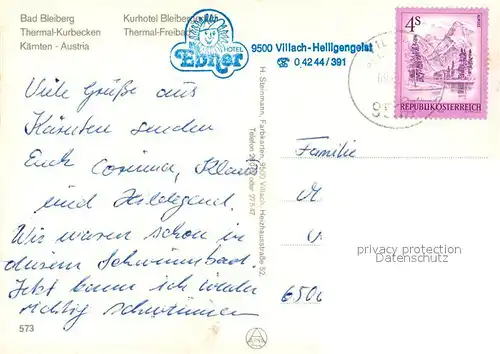 Bad Bleiberg
Thermal-Kurbecken
Kärnten - Austria
Kurhotel Bleiberg
Thermal-Freibad
HOTEL
Ebner
9500 Villach-Heiligengeist
☎ 0 42 44 / 391
4S
REPUBLIK ÖSTERREICH
Viele Grüße aus
Kärnten senden
Euch Corinna, Klaus
und Hildegund.
Wir waren schon in
diesem Schwimmbad
Jetzt kann ich wieder
richtig schwimmen
Familie
M
650
H. Steinmann, Farbkarten, 9500 Villach, Heizhausstraße 52,
Telefon
oder 27 5 47
privacy protection
Datenschutz
573